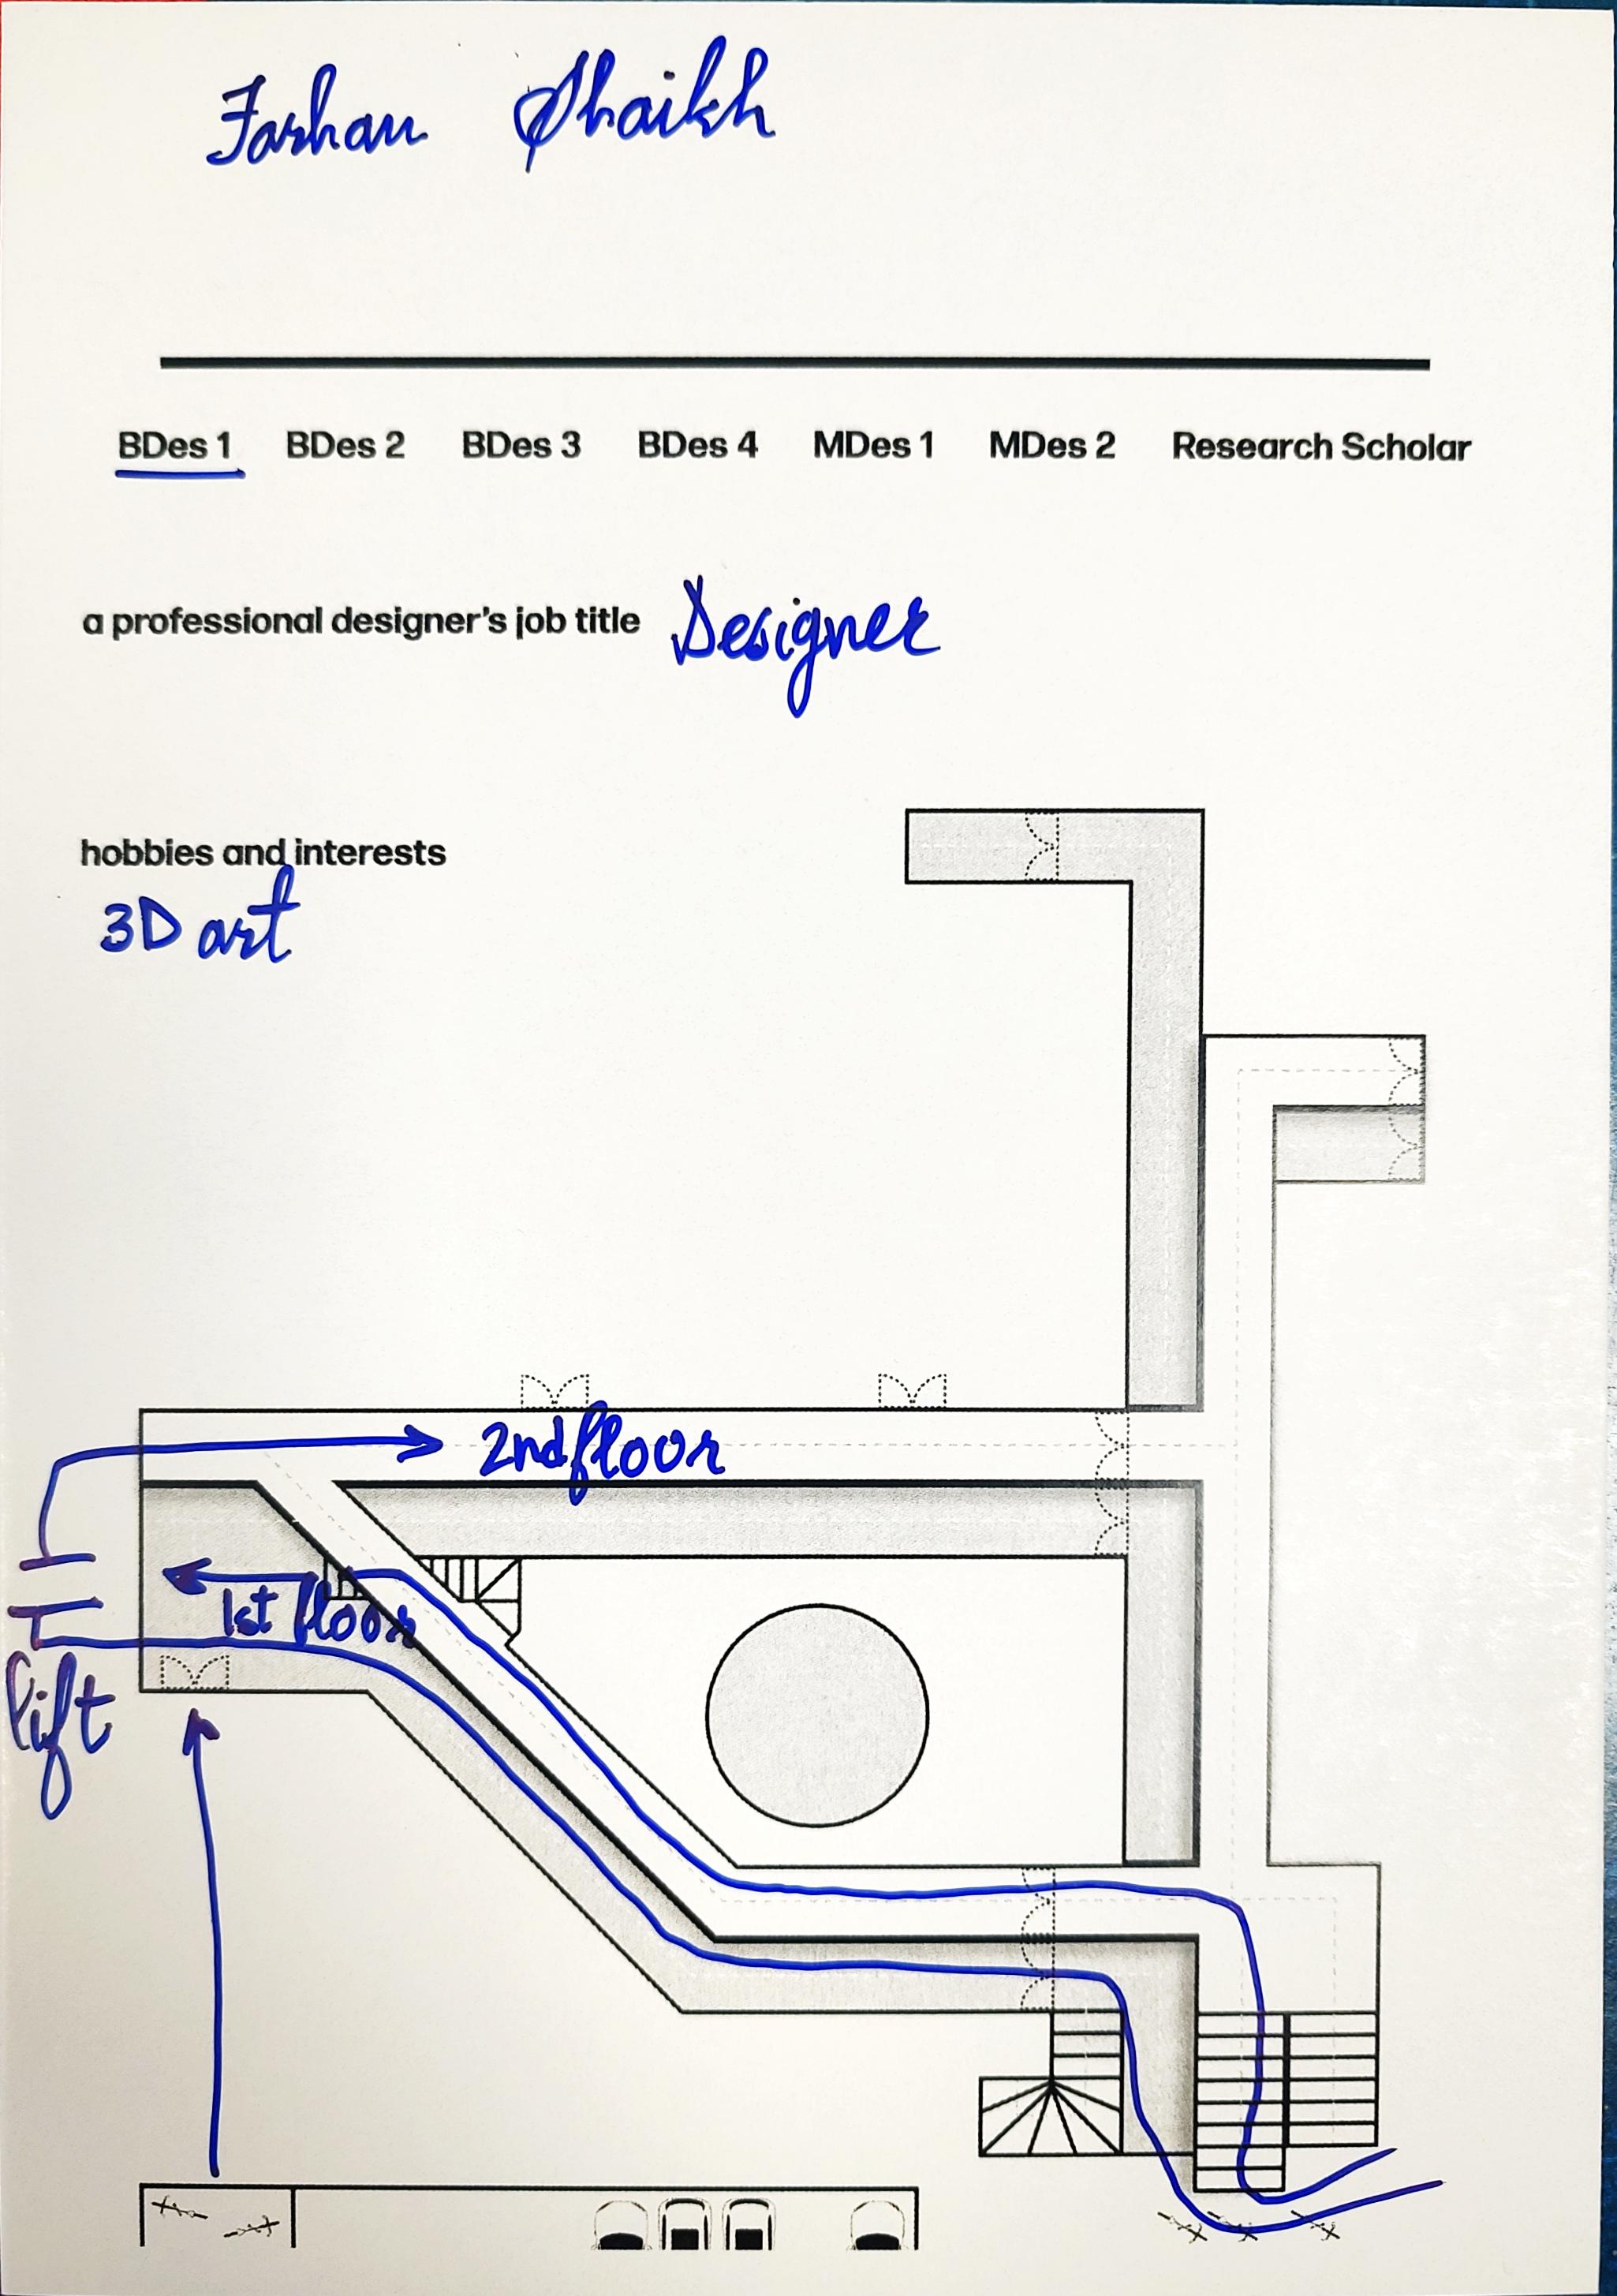 Farhan Shaikh
BDes 1 BDes 2 BDes 3 BDes 4 MDes 1 MDes 2 Research Scholar
a professional designer's job title Designer
hobbies and interests
3D art
2nd floor
1st floor
lift